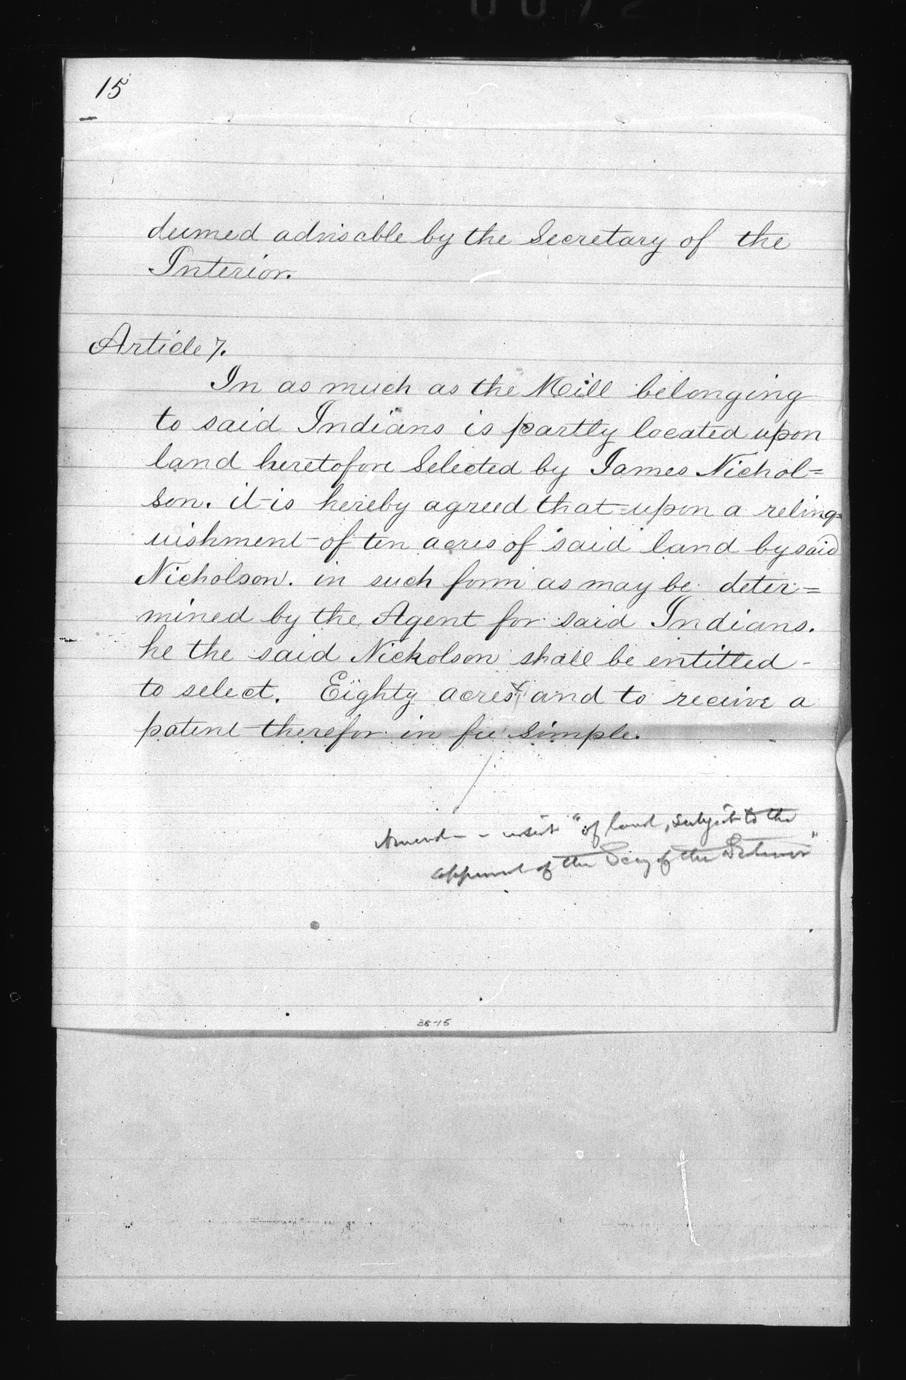 0072
15
deemed advisable by the Secretary of the
Interior.
Article 7.
In as much as the Mill belonging
to said Indians is partly located upon
land heretofore Selected by James Nichol=
son. it is hereby agreed that upon a relinq=
uishment of ten acres of said land by said
Nicholson. in such form as may be deter=
mined by the Agent for said Indians.
he the said Nickolson shall be entitled
to select. Eighty acres and to receive a
patent therefor in fee simple.
Amend - insert "of land, subject to the
approval of the Secy of the Interior"
38-15